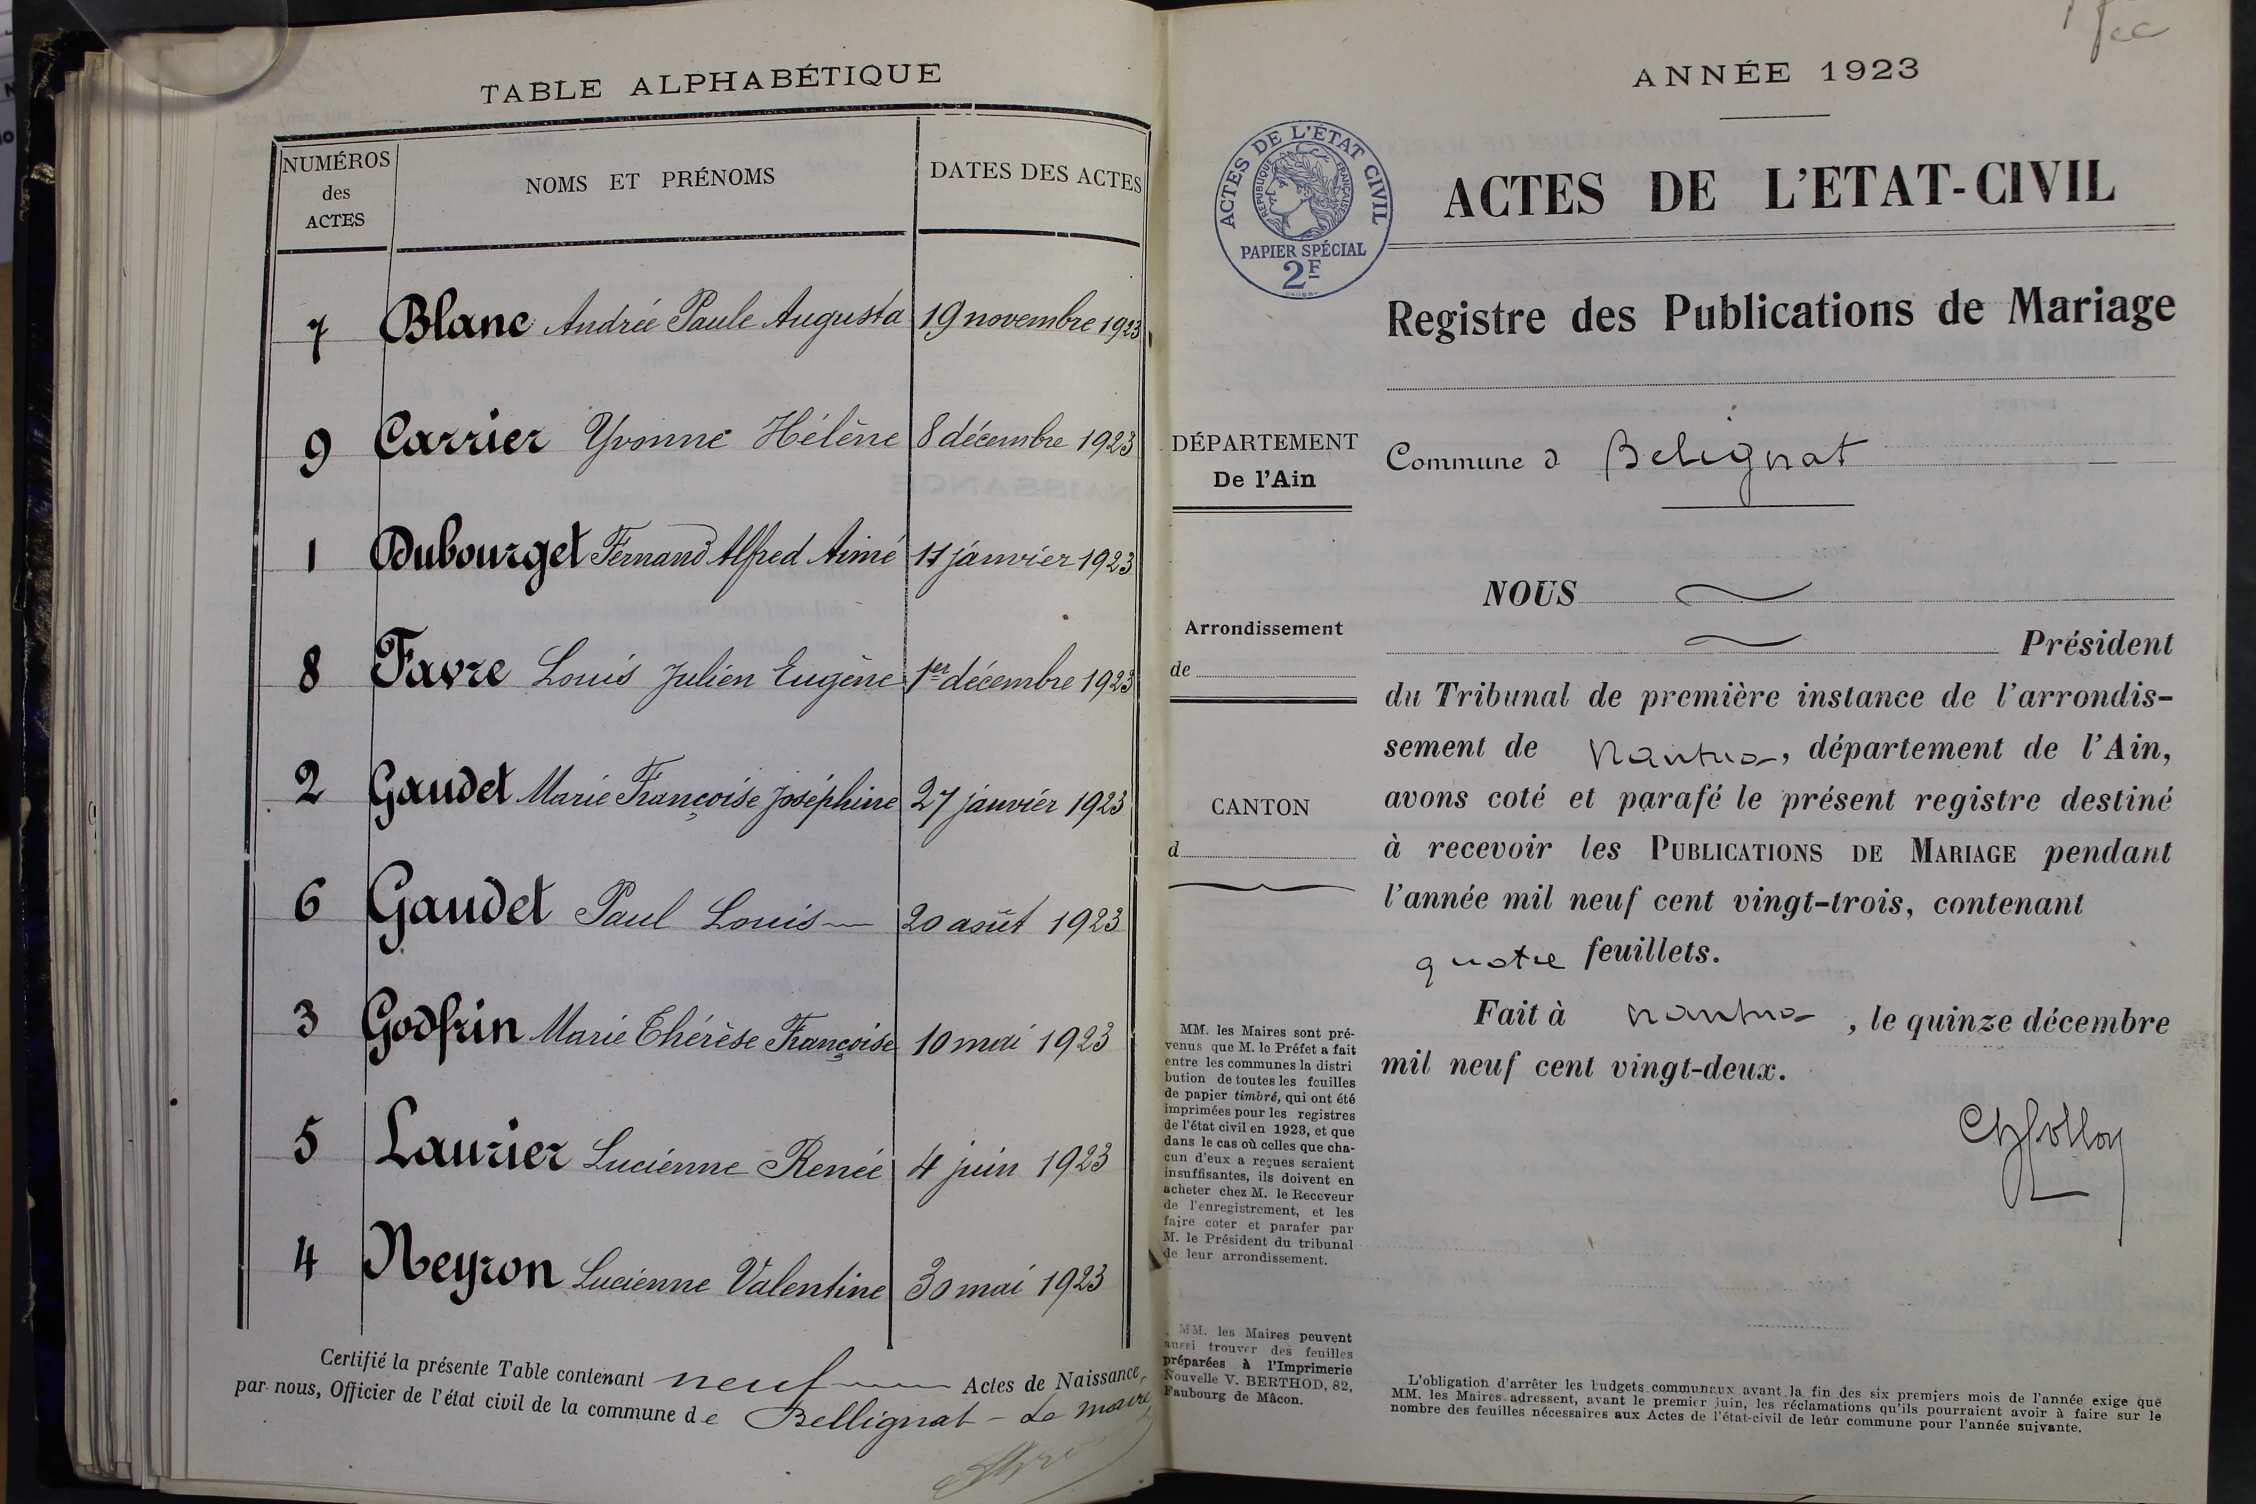 TABLE ALPHABÉTIQUE
NUMÉROS des ACTES
NOMS ET PRÉNOMS
DATES DES ACTES
7 Blanc Andrée Paule Augusta 19 novembre 1923
9 Carrier Yvonne Hélène 8 décembre 1923
1 Dubourget Fernand Alfred Aimé 11 janvier 1923
8 Favre Louis Julien Eugène 1er décembre 1923
2 Gaudet Marie Françoise Joséphine 27 janvier 1923
6 Gaudet Paul Louis 20 août 1923
3 Godfrin Marie Thérèse Françoise 10 mai 1923
5 Laurier Lucienne Renée 4 juin 1923
4 Neyron Lucienne Valentine 30 mai 1923
Certifié la présente Table contenant neuf Actes de Naissance,
par nous, Officier de l'état civil de la commune de Bellignat - Le maire
ANNÉE 1923
ACTES DE L'ÉTAT CIVIL
RÉPUBLIQUE FRANÇAISE
PAPIER SPÉCIAL
2F
ACTES DE L'ETAT-CIVIL
Registre des Publications de Mariage
DÉPARTEMENT
De l'Ain
Commune d Belignat
Arrondissement
de
CANTON
d
NOUS
Président
du Tribunal de première instance de l'arrondis-
sement de Nantua, département de l'Ain,
avons coté et parafé le présent registre destiné
à recevoir les PUBLICATIONS DE MARIAGE pendant
l'année mil neuf cent vingt-trois, contenant
quatre feuillets.
Fait à Nantua, le quinze décembre
mil neuf cent vingt-deux.
MM. les Maires sont pré-
venus que M. le Préfet a fait
entre les communes la distri
bution de toutes les feuilles
de papier timbré, qui ont été
imprimées pour les registres
de l'état civil en 1923, et que
dans le cas où celles que cha-
cun d'eux a reçues seraient
insuffisantes, ils doivent en
acheter chez M. le Receveur
de l'enregistrement, et les
faire coter et parafer par
M. le Président du tribunal
de leur arrondissement.
MM. les Maires peuvent
aussi trouver des feuilles
préparées à l'Imprimerie
Nouvelle V. BERTHOD, 82,
Faubourg de Mâcon.
L'obligation d'arrêter les budgets communaux avant la fin des six premiers mois de l'année exige que
MM. les Maires adressent, avant le premier juin, les réclamations qu'ils pourraient avoir à faire sur le
nombre des feuilles nécessaires aux Actes de l'état-civil de leur commune pour l'année suivante.